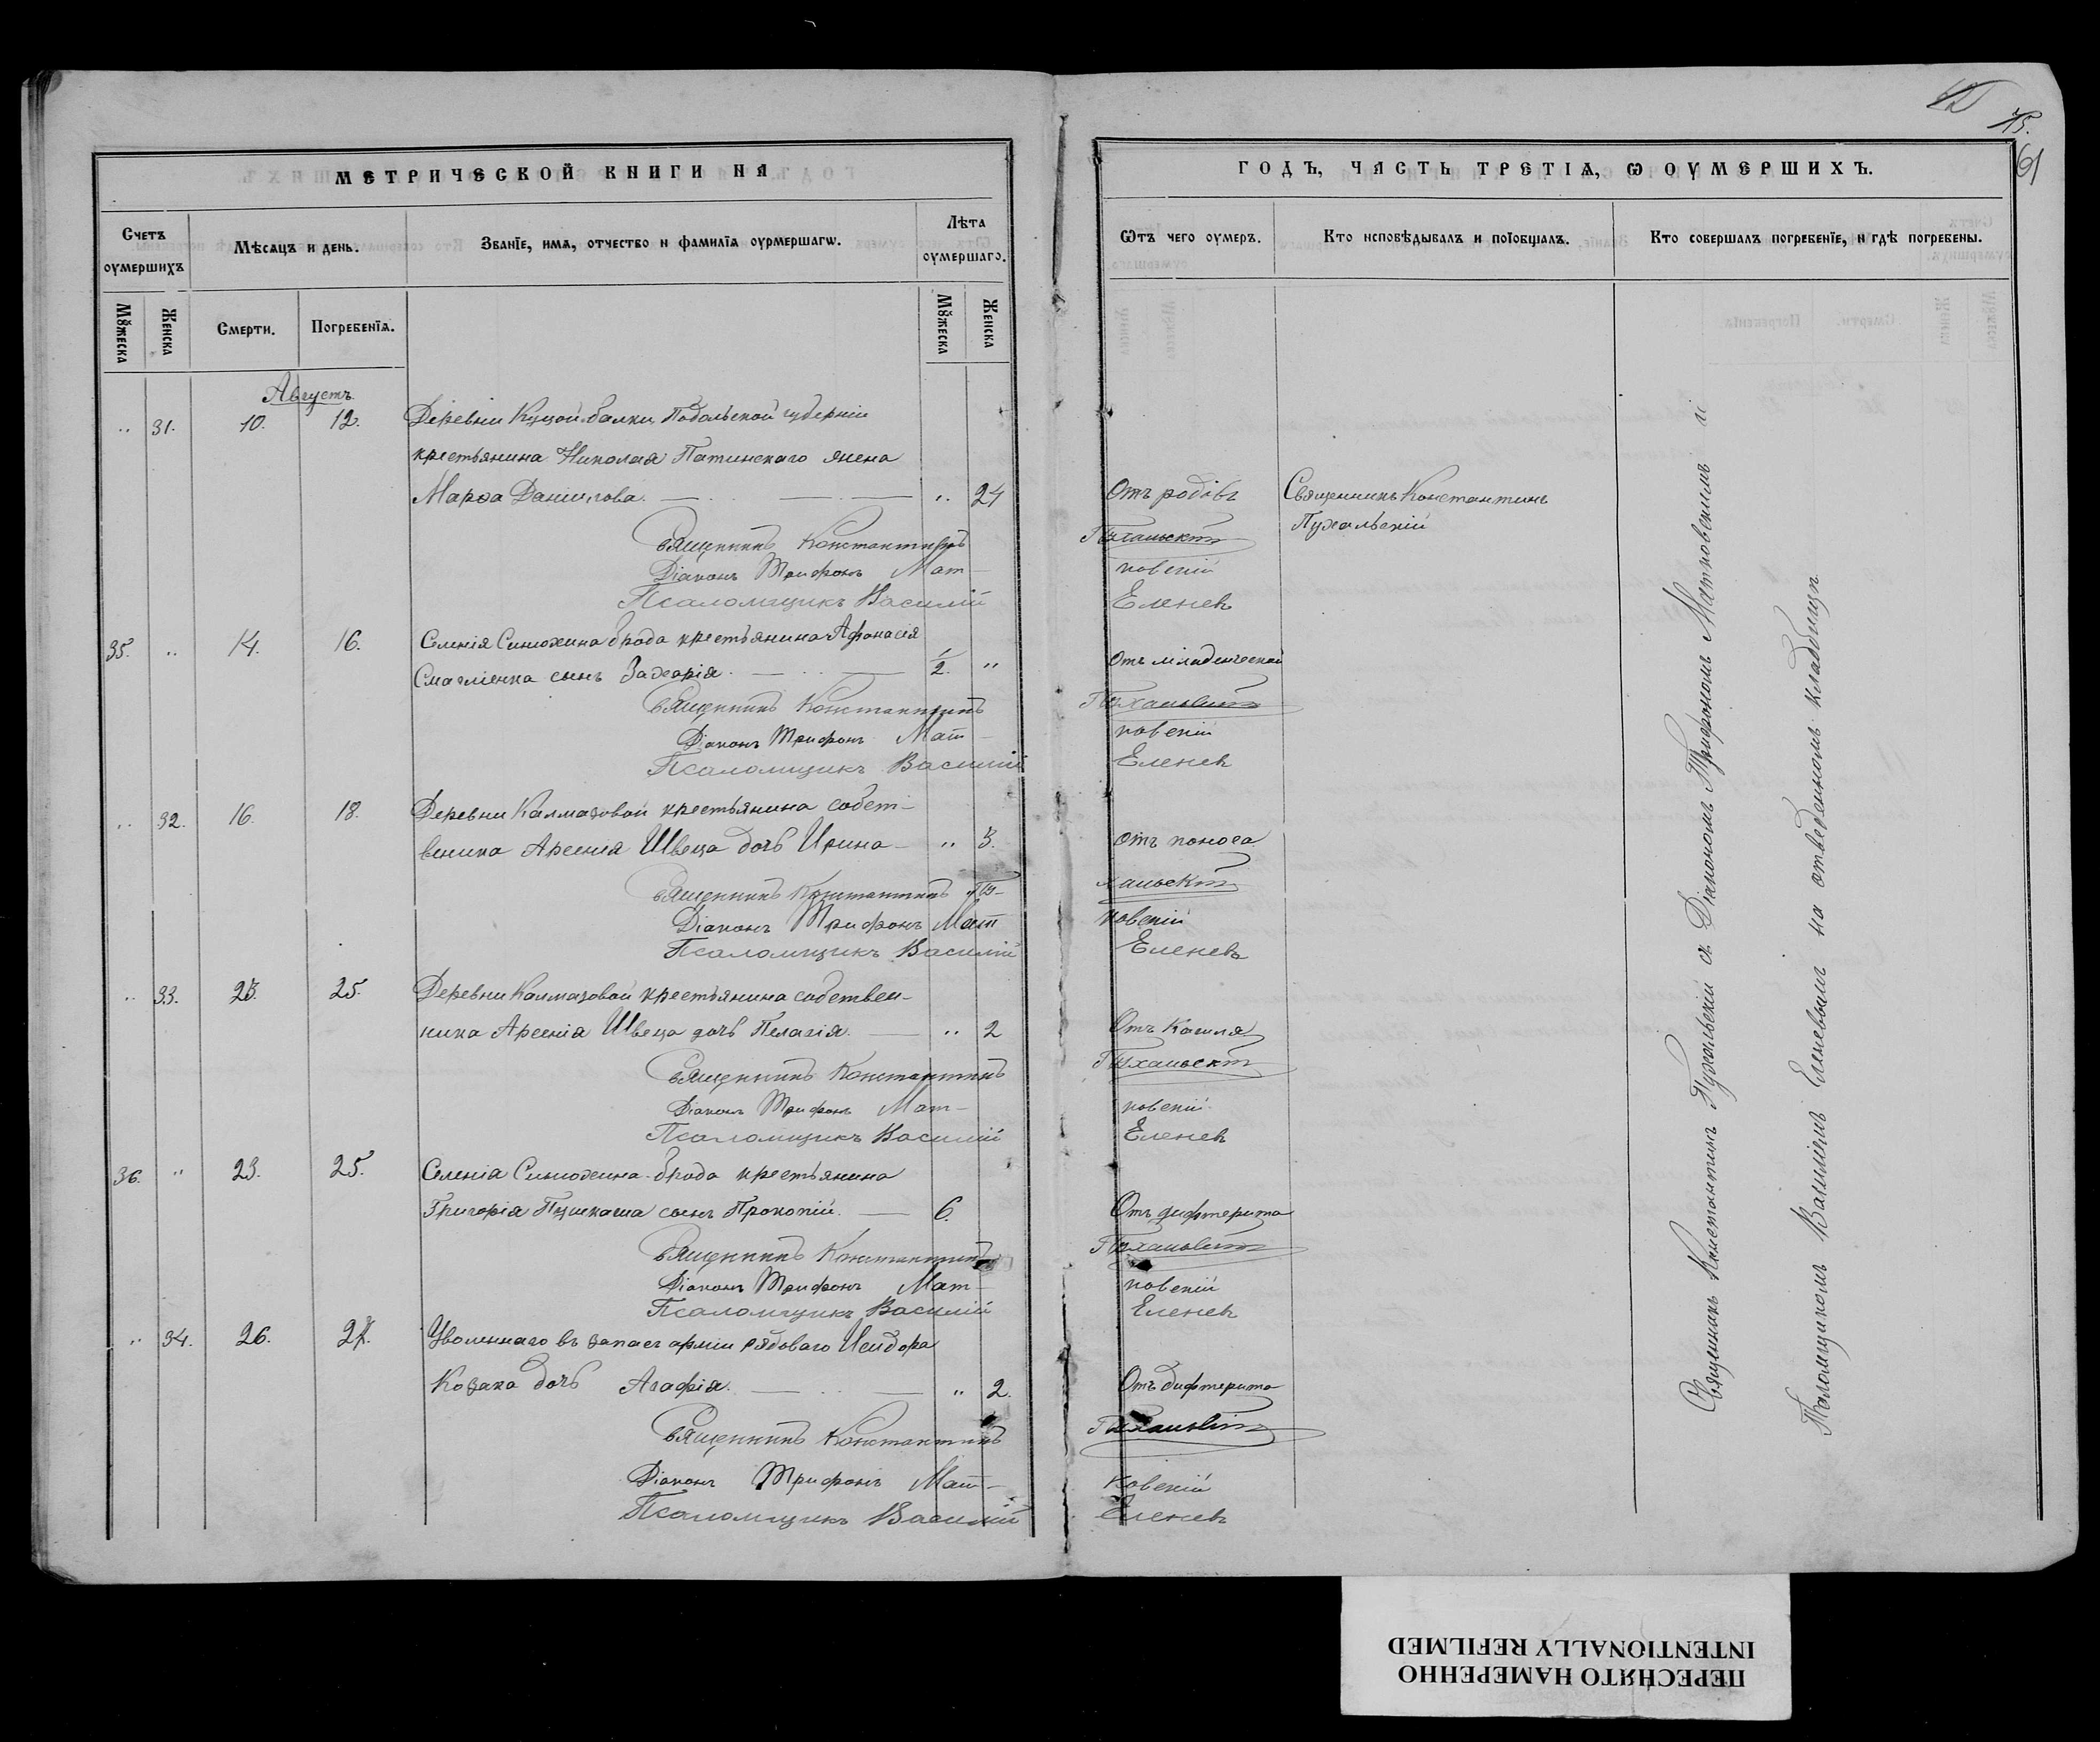 МЕТРИЧЕСКОЙ КНИГИ НА
Счетъ оумершихъ
Мѣсяцъ и день.
Званїе, имя, отчество и фамилїя оурмершагѡ.
Лѣта оумершаго.
Мꙋжеска
Женска
Смерти.
Погребенїя.
Мꙋжеска
Женска
Августъ
.. 31. 10. 12. Деревни Куцой-балки, Подольской губерніи
крестьянина Николая Патинскаго жена
Марѳа Данилова. .. 24
Священникъ Константинъ
Діаконъ Трифонъ Мат-
Псаломщикъ Василій
35. .. 14. 16. Селенія Синюхина брода крестьянина Афанасія
сынъ Захарія. 1/2. "
Священникъ Константинъ
Діаконъ Трифонъ Мат-
Псаломщикъ Василій
.. 32. 16. 18. Деревни Калмазовой крестьянина собст-
веника Арсенія Швеца дочь Ирина .. 3.
Священникъ Константинъ Пу-
Діаконъ Трифонъ Мат
Псаломщикъ Василій
.. 33. 23. 25. Деревни Калмазовой крестьянина собствен-
ника Арсенія Швеца дочь Пелагія. .. 2
Священникъ Константинъ
Діаконъ Трифонъ Мат-
Псаломщикъ Василій
36. " 23. 25. Селенія Синюхина-брода крестьянина
Григорія сынъ Прокопій. 6.
Священникъ Константинъ
Діаконъ Трифонъ Мат-
Псаломщикъ Василій
.. 34. 26. Уволеннаго въ запасъ арміи рядоваго Исидора
Козака дочь Агафія. " 2.
Священникъ Константинъ
Діаконъ Трифонъ Мат-
Псаломщикъ Василій
61
ГОДЪ, ЧАСТЬ ТРЕТІѦ, Ѡ ОУМЕРШИХЪ.
Ѡтъ чего оумеръ.
Кто исповѣдывалъ и поїобщалъ.
Кто совершалъ погребенїе, и гдѣ погребены.
Отъ родовъ
Священникъ Константинъ
Пухальскій
Пухальскій
ковскій
Еленевъ
Отъ младенческой
Пухальскій
ковскій
Еленевъ
Отъ поноса
хальскій
ковскій
Еленевъ
Отъ кашля
Пухальскій
ковскій
Еленевъ
Отъ дифтерита
Пухальскій
ковскій
Еленевъ
Отъ дифтерита
Пухальскій
ковскій
Еленевъ
Священникъ Константинъ Пухальскій съ Діакономъ Трифономъ Матковскимъ и
Псаломщикомъ Василіемъ Еленевымъ на отведенномъ кладбищѣ
ПЕРЕСНЯТО НАМЕРЕННО
INTENTIONALLY REFILMED